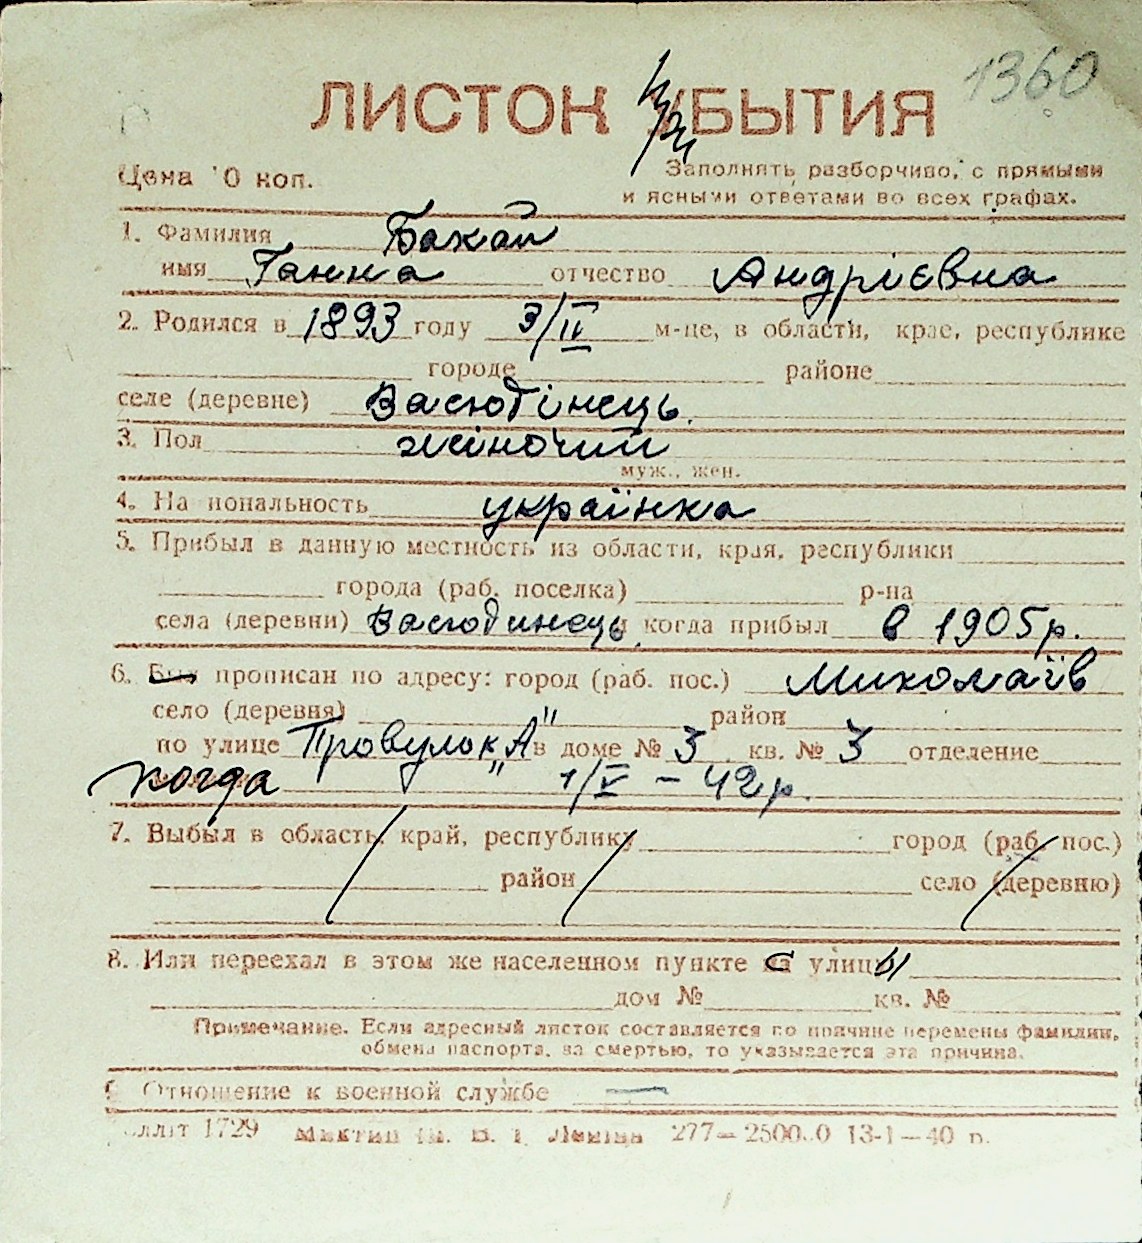 1360
ЛИСТОК ПРИБЫТИЯ
Цена 10 коп.
Заполнять разборчиво, с прямыми
и ясными ответами во всех графах.
1. Фамилия Бакай
имя Ганна отчество Андріевна
2. Родился в 1893 году 3/II м-це, в области, крае, республике
городе районе
селе (деревне) Васютінець.
3. Пол жіночий
муж., жен.
4. Национальность українка
5. Прибыл в данную местность из области, края, республики
города (раб. поселка) р-на
села (деревни) Васютинець. когда прибыл в 1905 р.
6. прописан по адресу: город (раб. пос.) Миколаїв
село (деревня) район
по улице Провулок „А" в доме № 3 кв. № 3 отделение
когда 1/V – 42 р.
7. Выбыл в область, край, республику город (раб. пос.)
район село (деревню)
8. Или переехал в этом же населенном пункте с улицы
дом № кв. №
Примечание. Если адресный листок составляется по причине перемены фамилии,
обмена паспорта, за смертью, то указывается эта причина.
9. Отношение к военной службе —
1729 277— 13-1—40 р.